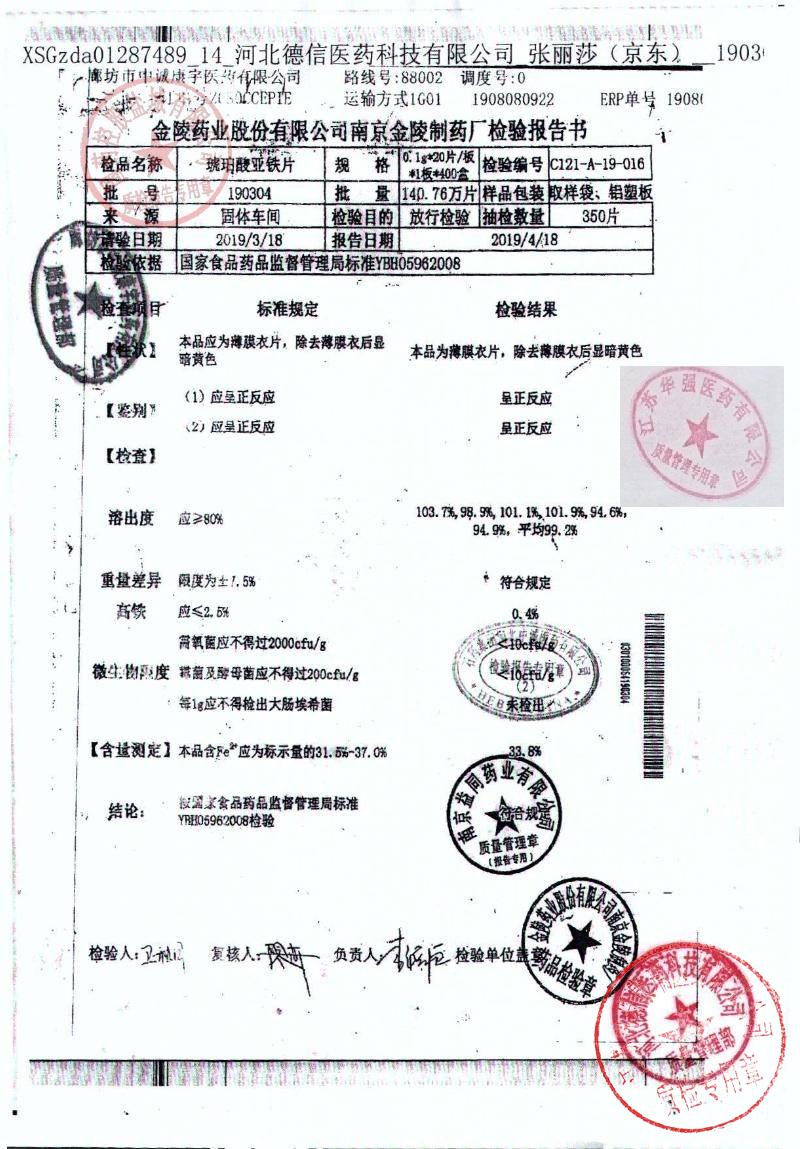 XSGzda01287489_14_河北德信医药科技有限公司_张丽莎（京东）__1903
廊坊市中诚康宇医药有限公司 路线号:88002 调度号:0
运输方式1G01 1908080922 ERP单号 1908
金陵药业股份有限公司南京金陵制药厂检验报告书
检品名称 琥珀酸亚铁片 规 格 0.1g*20片/板*1板*400盒 检验编号 C121-A-19-016
批 号 190304 批 量 140.76万片 样品包装 取样袋、铝塑板
来 源 固体车间 检验目的 放行检验 抽检数量 350片
请验日期 2019/3/18 报告日期 2019/4/18
检验依据 国家食品药品监督管理局标准YBH05962008
检查项目 标准规定 检验结果
【性状】 本品应为薄膜衣片，除去薄膜衣后显暗黄色 本品为薄膜衣片，除去薄膜衣后显暗黄色
【鉴别】 (1) 应呈正反应 呈正反应
(2) 应呈正反应 呈正反应
【检查】
江苏华强医药有限公司
质量管理专用章
溶出度 应≥80% 103.7%,98.9%,101.1%,101.9%,94.6%,
94.9%, 平均99.2%
重量差异 限度为±7.5% 符合规定
高铁 应≤2.5% 0.4%
需氧菌应不得过2000cfu/g <10cfu/g
微生物限度 霉菌及酵母菌应不得过200cfu/g <10cfu/g
每1g应不得检出大肠埃希菌 未检出
检验报告专用章
(2)
【含量测定】 本品含Fe²⁺应为标示量的31.5%-37.0% 33.8%
结论: 按国家食品药品监督管理局标准 符合规
YBH05962008检验
南京益同药业有限公司
质量管理章
(报告专用)
检验人: 复核人: 负责人: 检验单位盖章
金陵药业股份有限公司南京金陵制药厂
药品检验章
河北德信医药科技有限公司
质量管理部
质检专用章